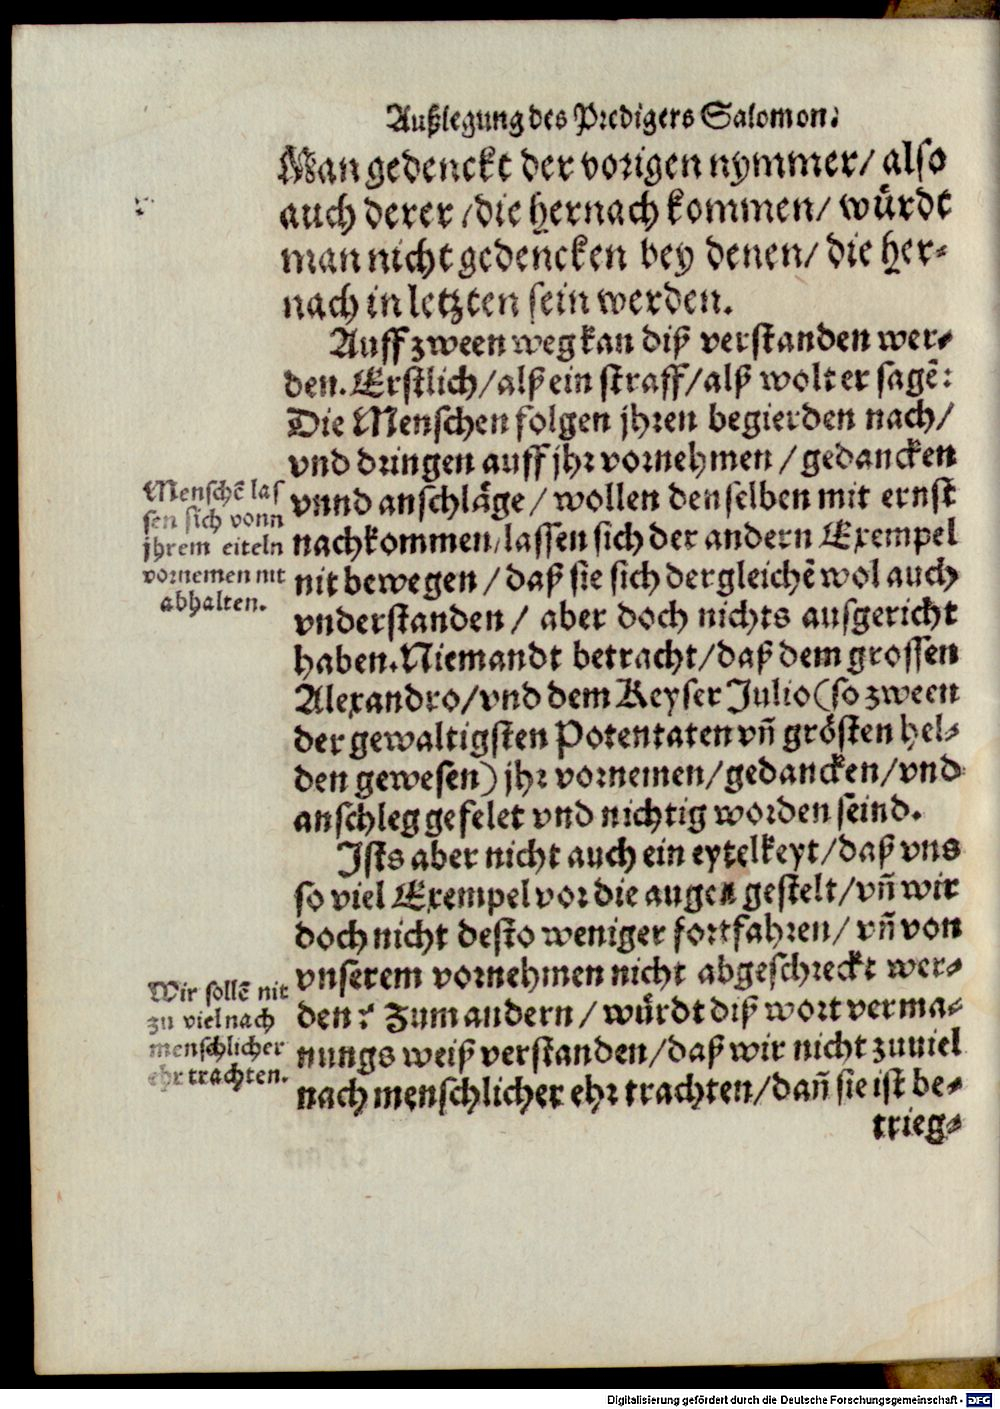 Außlegung des Predigers Salomon.
Man gedenckt der vorigen nymmer/ also
auch derer /die hernach kommen/ würdt
man nicht gedencken bey denen/ die her-
nach in letzten sein werden.
Auff zween weg kan diß verstanden wer-
den. Erstlich/alß ein straff/alß wolt er sagē:
Die Menschen folgen jhren begierden nach/
vnd dringen auff jhr vornehmen /gedancken
vnnd anschläge/ wollen denselben mit ernst
nachkommen/lassen sich der andern Exempel
nit bewegen /daß sie sich dergleichē wol auch
vnderstanden / aber doch nichts ausgericht
haben. Niemandt betracht/daß dem grossen
Alexandro/vnd dem Keyser Julio (so zween
der gewaltigsten Potentaten vñ grösten hel-
den gewesen) jhr vornemen/gedancken/vnd
anschleg gefelet vnd nichtig worden seind.
Ists aber nicht auch ein eytelkeyt/daß vns
so viel Exempel vor die augen gestelt/vñ wir
doch nicht desto weniger fortfahren/ vñ von
vnserem vornehmen nicht abgeschreckt wer-
den? Zum andern / würdt diß wort verma-
nungs weiß verstanden/daß wir nicht zuuiel
nach menschlicher ehr trachten/dañ sie ist be-
trieg-
Menschē las
sen sich vonn
jhrem eiteln
vornemen nit
abhalten.
Wir sollē nit
zu viel nach
menschlicher
ehr trachten.
Digitalisierung gefördert durch die Deutsche Forschungsgemeinschaft - DFG